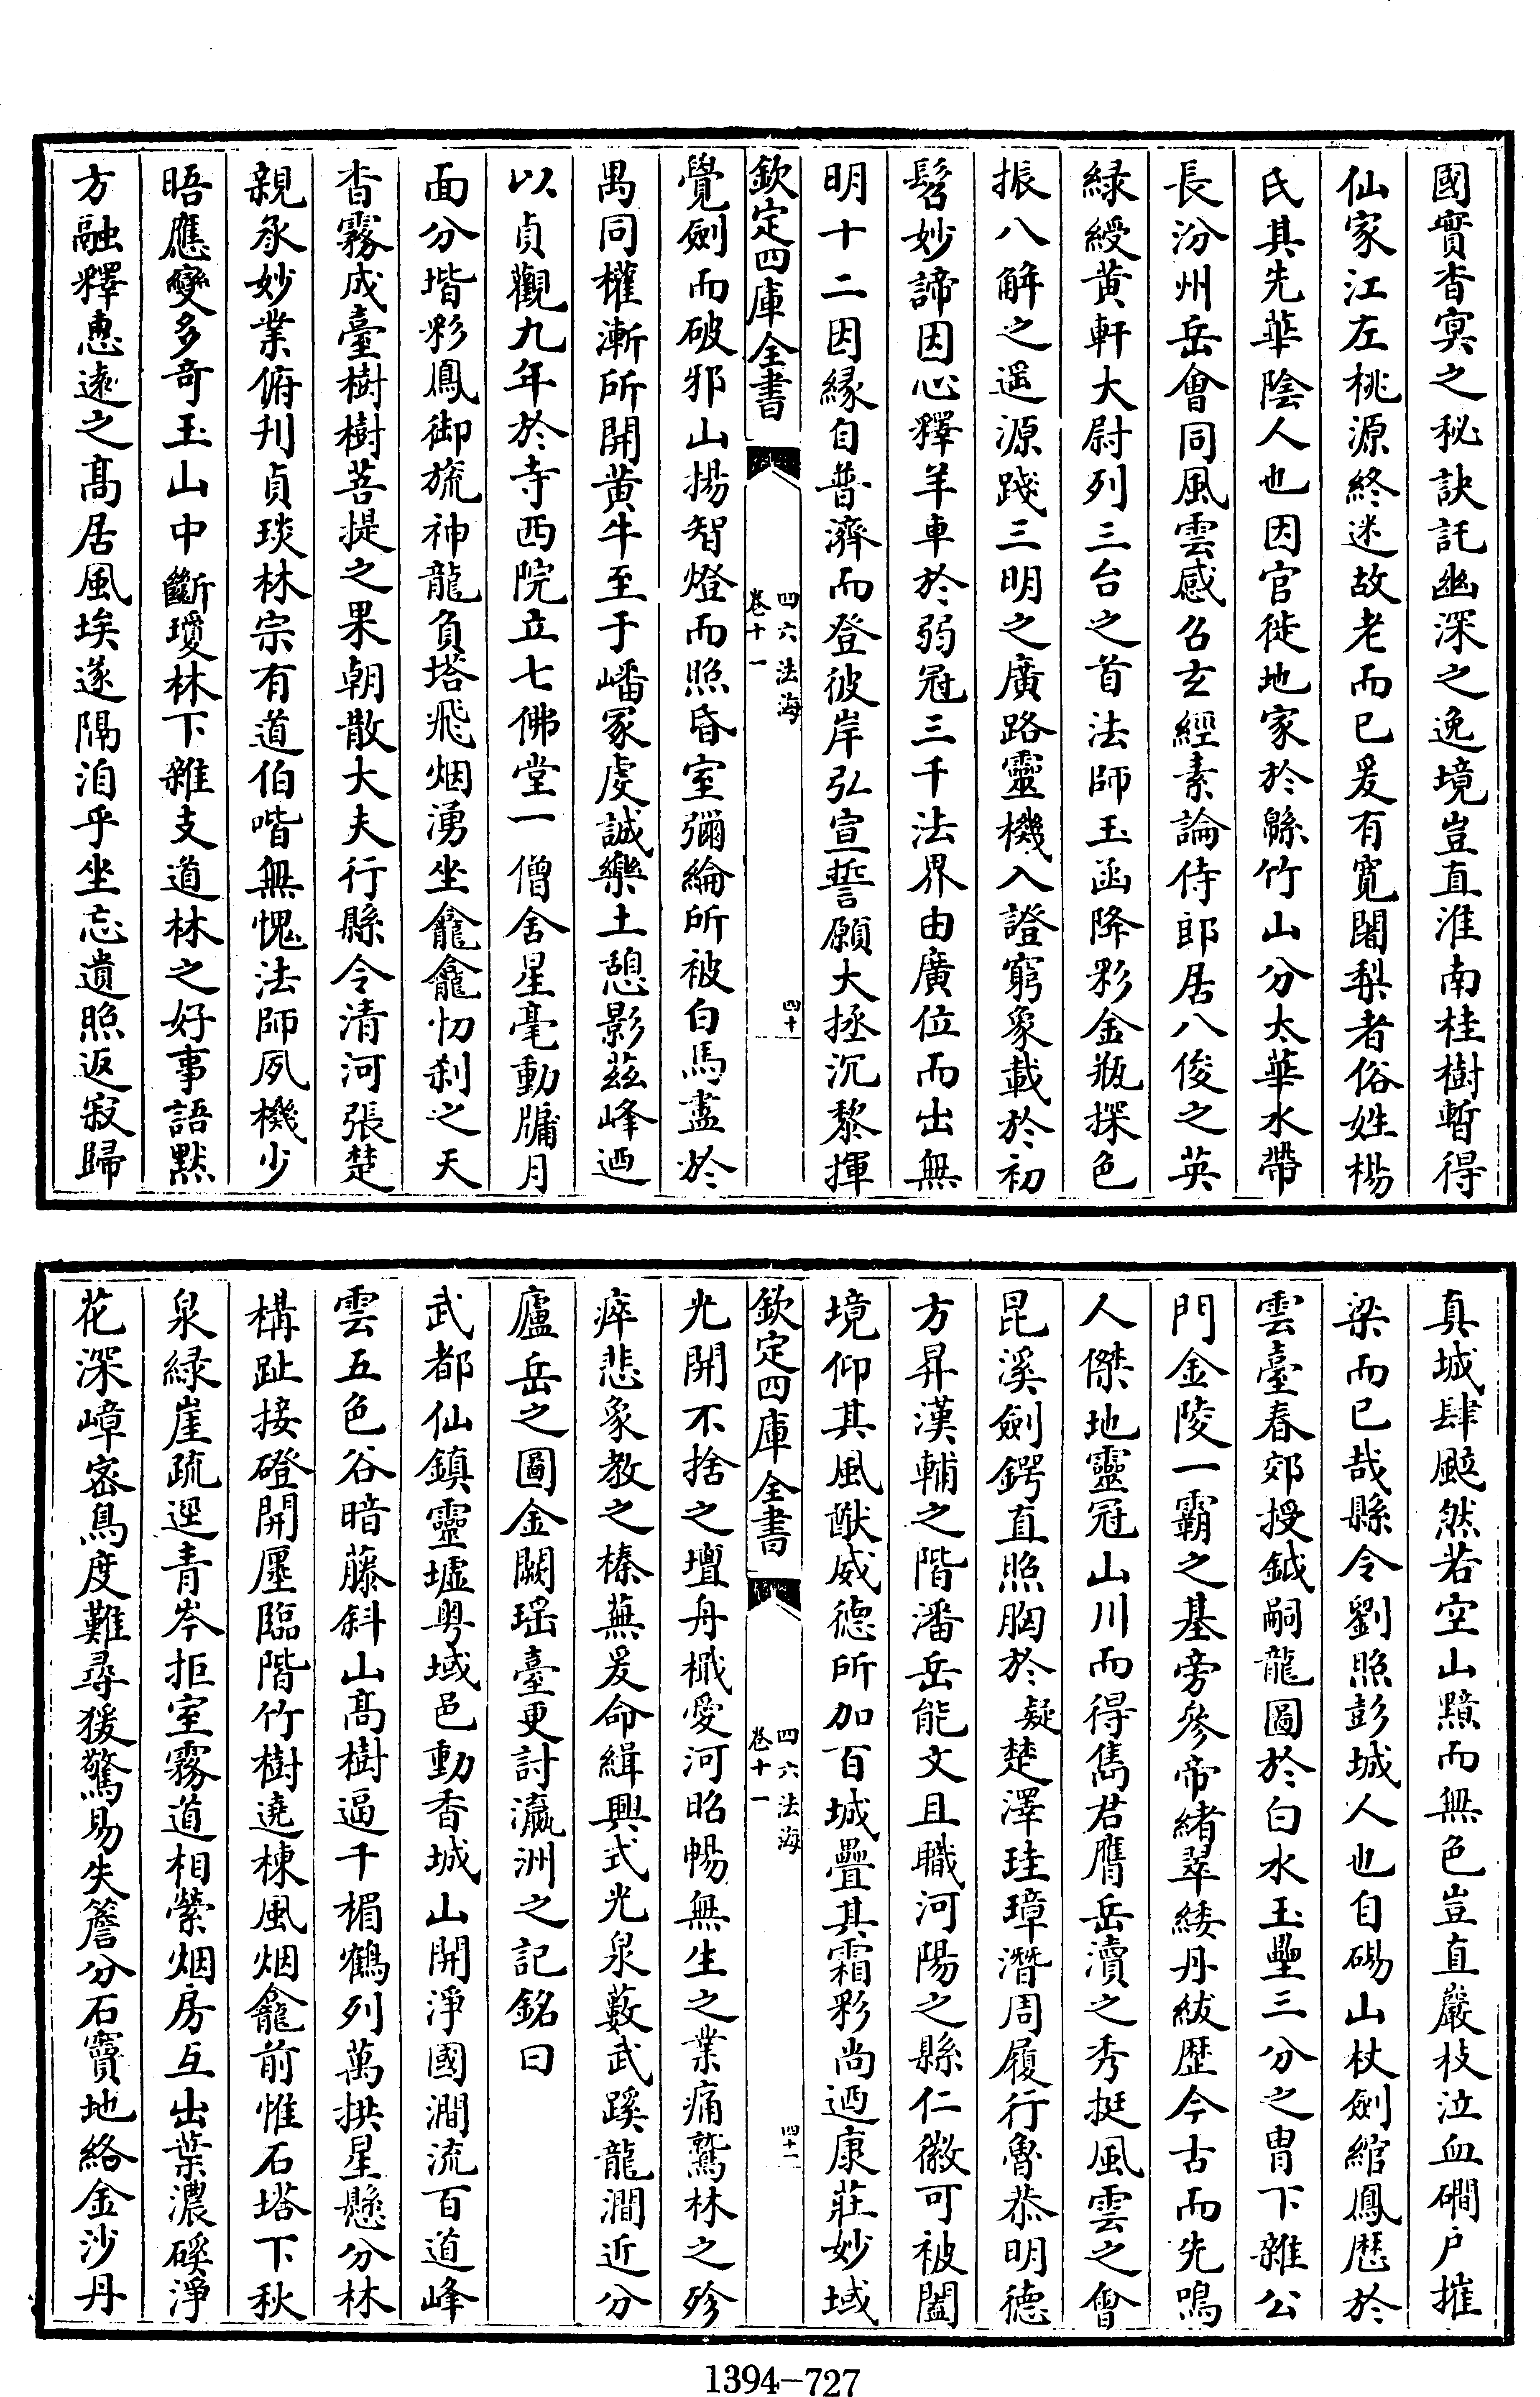 國實杳冥之秘訣託幽深之逸境豈直淮南桂樹暫得
仙家江左桃源終迷故老而已爰有寛闍梨者俗姓楊
氏其先華陰人也因官徙地家於緜竹山分太華水帶
長汾州岳會同風雲感召玄經素論侍郎居八俊之英
緑綬黄軒大尉列三台之首法師玉函降彩金瓶探色
振八解之遥源踐三明之廣路靈機入證窮象載於初
髫妙諦因心釋羊車於弱冠三千法界由廣位而出無
明十二因縁自普濟而登彼岸弘宣誓願大拯沉黎揮
欽定四庫全書
四六法海
卷十一
四十
覺劍而破邪山揚智燈而照昏室彌綸所被白馬盡於
禺同權漸所開黄牛至于嶓冢虔誠樂土憩影茲峰迺
以貞觀九年於寺西院立七佛堂一僧舍星毫動牖月
面分堦彩鳳御旒神龍負塔飛烟湧坐龕龕忉刹之天
杳霧成臺樹樹菩提之果朝散大夫行縣令清河張楚
親承妙業俯刋貞琰林宗有道伯喈無愧法師夙機少
晤應變多奇玉山中斷瓊林下雜支道林之好事語黙
方融釋恵遠之髙居風埃遂隔洎乎坐忘遺照返寂歸
真城肆颷然若空山黯而無色豈直巖枝泣血磵户摧
梁而已哉縣令劉照彭城人也自碭山杖劍綰鳳厯於
雲臺春郊授鉞嗣龍圖於白水玉壘三分之胄下雜公
門金陵一霸之基旁參帝緒翠緌丹紱歴今古而先鳴
人傑地靈冠山川而得雋君膺岳瀆之秀挺風雲之會
昆溪劍鍔直照胸於疑楚澤珪璋潛周履行魯恭明德
方昇漢輔之階潘岳能文且職河陽之縣仁徽可被闔
境仰其風猷威德所加百城疊其霜彩尚迺康莊妙域
欽定四庫全書
四六法海
卷十一
四十一
光開不捨之壇舟檝愛河昭暢無生之業痛鷲林之殄
瘁悲象教之榛蕪爰命緝興式光泉藪武蹊龍澗近分
廬岳之圖金闕瑶臺更討瀛洲之記銘曰
武都仙鎮靈墟粤域邑動香城山開淨國澗流百道峰
雲五色谷暗藤斜山髙樹逼千楣鶴列萬拱星懸分林
構趾接磴開廛臨階竹樹遶棟風烟龕前惟石塔下秋
泉緑崖疏逕青岑拒室霧道相縈烟房互出葉濃磎淨
花深嶂密鳥度難尋猨驚易失簷分石竇地絡金沙丹
1394-727